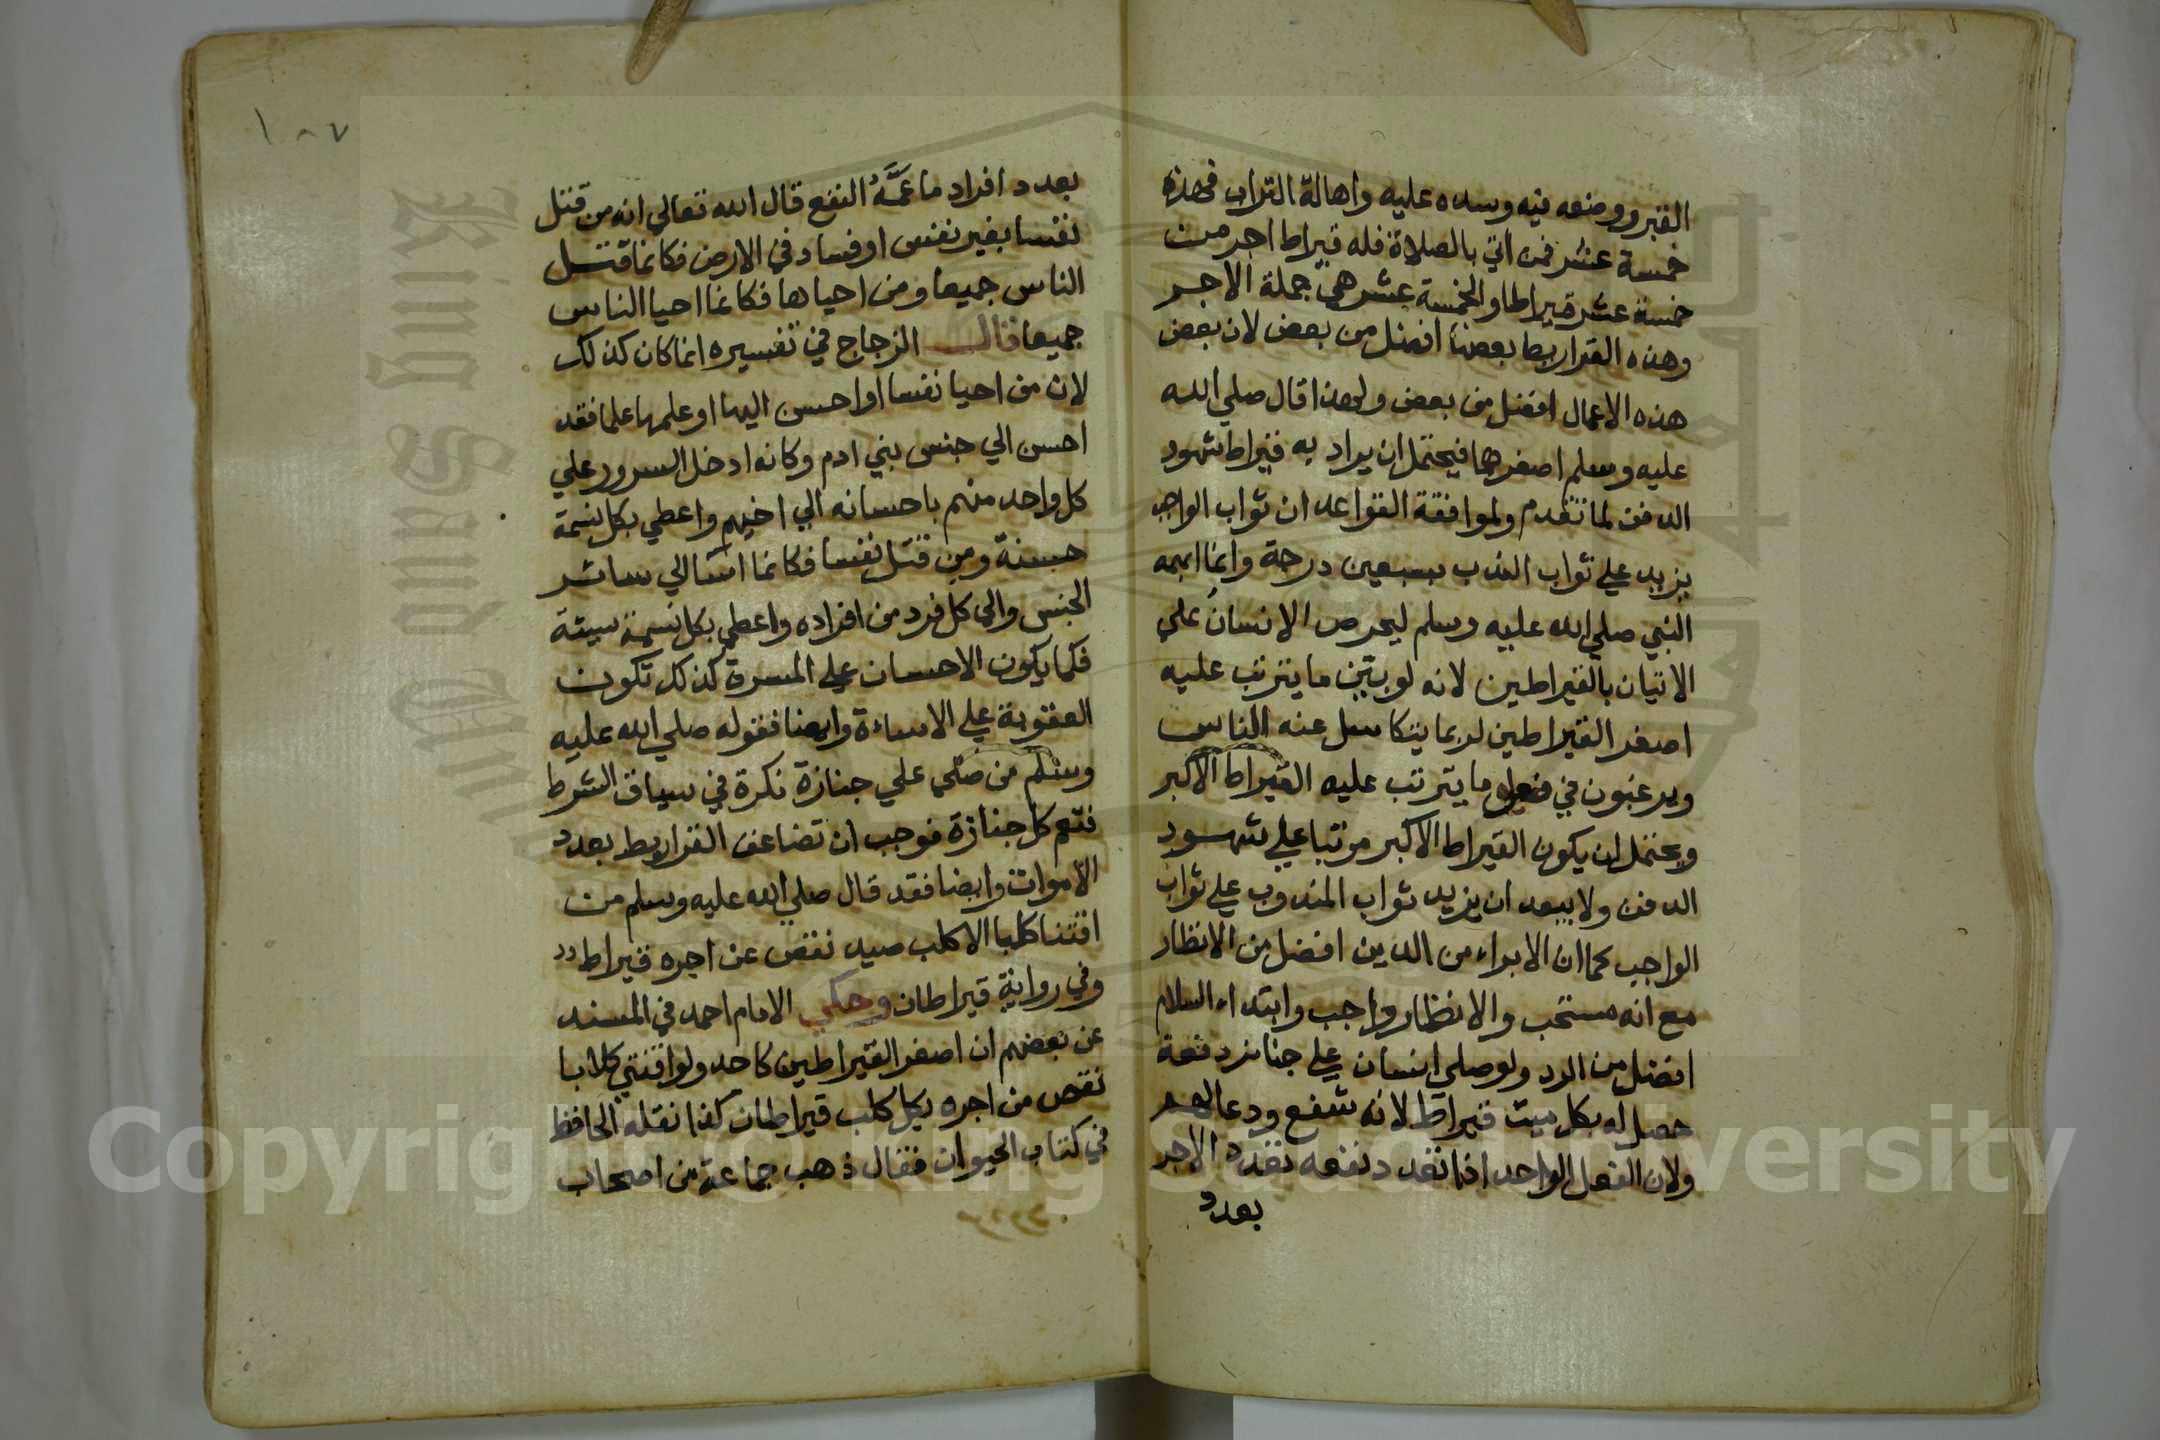 القبر ووضعه فيه وسده عليه واهالة التراب فهذه
خمسة عشر فمن اتي بالصلاة فله قيراط اجر من
خمسة عشر قيراطا والخمسة عشر هي جملة الاجر
وهذه القراريط بعضها افضل من بعض لان بعض
هذه الاعمال افضل من بعض ولهذا قال صلي الله
عليه وسلم اصغرهما فيحتمل ان يراد به قيراط شهود
الدفن لما تقدم ولموافقة القواعد ان ثواب الواجب
يزيد علي ثواب الندب بسبعين درجة وانما ابهمه
النبي صلي الله عليه وسلم ليحرص الانسان علي
الاتيان بالقيراطين لانه لو بين ما يترتب عليه
اصغر القيراطين لربما يتكاسل عنه الناس
ويرغبون في فعل ما يترتب عليه القيراط الاكبر
ويحتمل ان يكون القيراط الاكبر مرتبا علي شهود
الدفن ولا يبعد ان يزيد ثواب المندوب علي ثواب
الواجب كما ان الابراء من الدين افضل من الانظار
مع انه مستحب والانظار واجب وابتداء السلام
افضل من الرد ولو صلي انسان علي جنايز دفعة
حصل له بكل ميت قيراط لانه شفع ودعا لهم
ولان الفعل الواحد اذا تعدد نفعه تعدد الاجر
بعدد
١٨٧
بعدد افراد ما عَمَّهُ النفع قال الله تعالي انه من قتل
نفسا بغير نفس او فساد في الارض فكانما قتل
الناس جميعا ومن احياها فكانما احيا الناس
جميعا قال الزجاج في تفسيره انما كان كذلك
لان من احيا نفسا او احسن اليها او علمها علما فقد
احسن الي جنس بني ادم وكانه ادخل السرور علي
كل واحد منهم باحسانه الي اخيهم واعطي بكل نسمة
حسنة ومن قتل نفسا فكانما اسا الي سائر
الجنس والي كل فرد من افراده واعطي بكل نسمة سيئة
فكما يكون الاحسان علي المسرة كذلك تكون
العقوبة علي الاساءة وايضا فقوله صلي الله عليه
وسلم من صلي علي جنازة نكرة في سياق الشرط
فتعم كل جنازة فوجب ان تضاعف القراريط بعدد
الاموات وايضا فقد قال صلي الله عليه وسلم من
اقتنا كلبا الا كلب صيد نقص عن اجره قيراط
وفي رواية قيراطان وحكي الامام احمد في المسند
عن بعضهم ان اصغر القيراطين كاحد ولو اقتني كلابا
نقص من اجره بكل كلب قيراطان كذا نقله الحافظ
في كتاب الحيوان فقال ذهب جماعة من اصحاب
King Saud University
Copyright © King Saud University